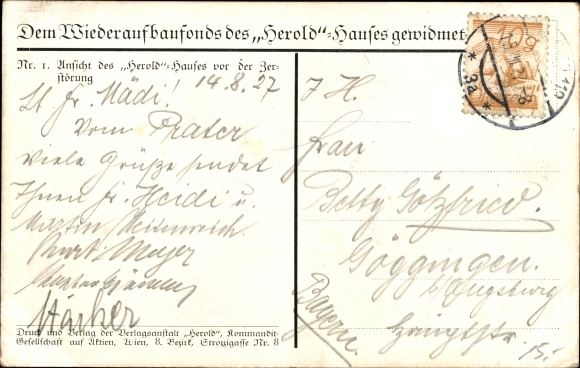 Dem Wiederaufbaufonds des „Herold“-Hauses gewidmet
Nr. 1. Ansicht des „Herold“-Hauses vor der Zer-
störung
14.8.27
Lb. Fr. Mädi!
Vom Prater
viele Grüße sendet
Ihnen Fr. Heidi u.
Martin
Kurt Mayer
Stärker
Druck und Verlag der Verlagsanstalt „Herold“, Kommandit-
Gesellschaft auf Aktien, Wien, 8. Bezirk, Strozzigasse Nr. 8
I. H.
Frau
Betty Götzfried.
Göggingen.
b/Augsburg
Bayern.
Hauptstr. 15.